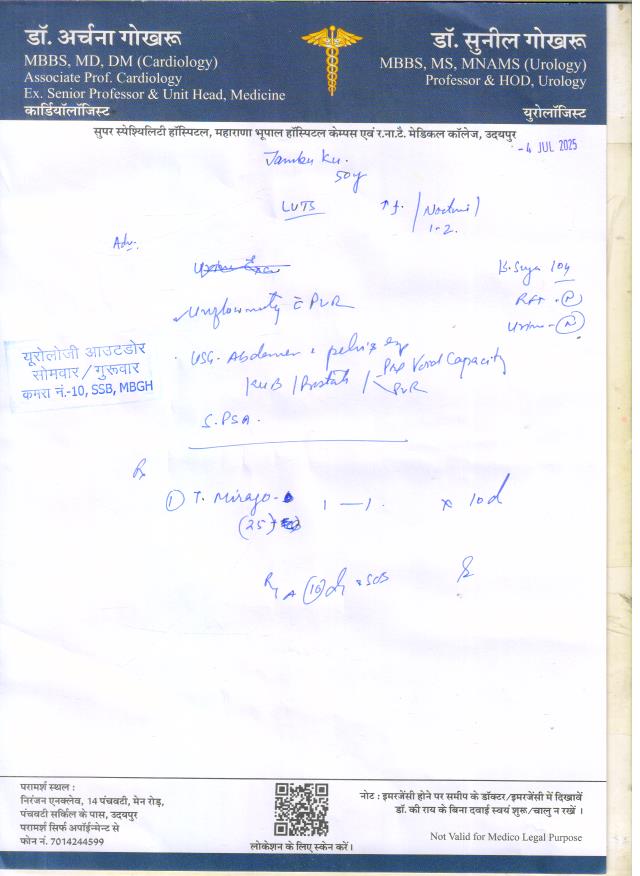 डॉ. अर्चना गोखरू
MBBS, MD, DM (Cardiology)
Associate Prof. Cardiology
Ex. Senior Professor & Unit Head, Medicine
कार्डियॉलॉजिस्ट
डॉ. सुनील गोखरू
MBBS, MS, MNAMS (Urology)
Professor & HOD, Urology
युरोलॉजिस्ट
सुपर स्पेश्यिलिटी हॉस्पिटल, महाराणा भूपाल हॉस्पिटल केम्पस एवं र.ना.टै. मेडिकल कॉलेज, उदयपुर
- 4 JUL 2025
50y
LUTS
1-2.
Adv.
B. Suga 104
RFT - N
Urine - N
Uroflowmetry c̄ PVR
USG. Abdomen & pelvis
KUB / Prostate / Pre Void Capacity
PVR
S. PSA.
यूरोलोजी आउटडोर
सोमवार / गुरूवार
कमरा नं.-10, SSB, MBGH
Rx
① T. Mirago- 1 — 1. x 10d
(25)
परामर्श स्थल :
निरंजन एनक्लेव, 14 पंचवटी, मेन रोड़,
पंचवटी सर्किल के पास, उदयपुर
परामर्श सिर्फ अपॉईन्मेन्ट से
फोन नं. 7014244599
लोकेशन के लिए स्केन करें ।
नोट : इमरजेंसी होने पर समीप के डॉक्टर/इमरजेंसी में दिखावें
डॉ. की राय के बिना दवाई स्वयं शुरू/चालु न रखें ।
Not Valid for Medico Legal Purpose